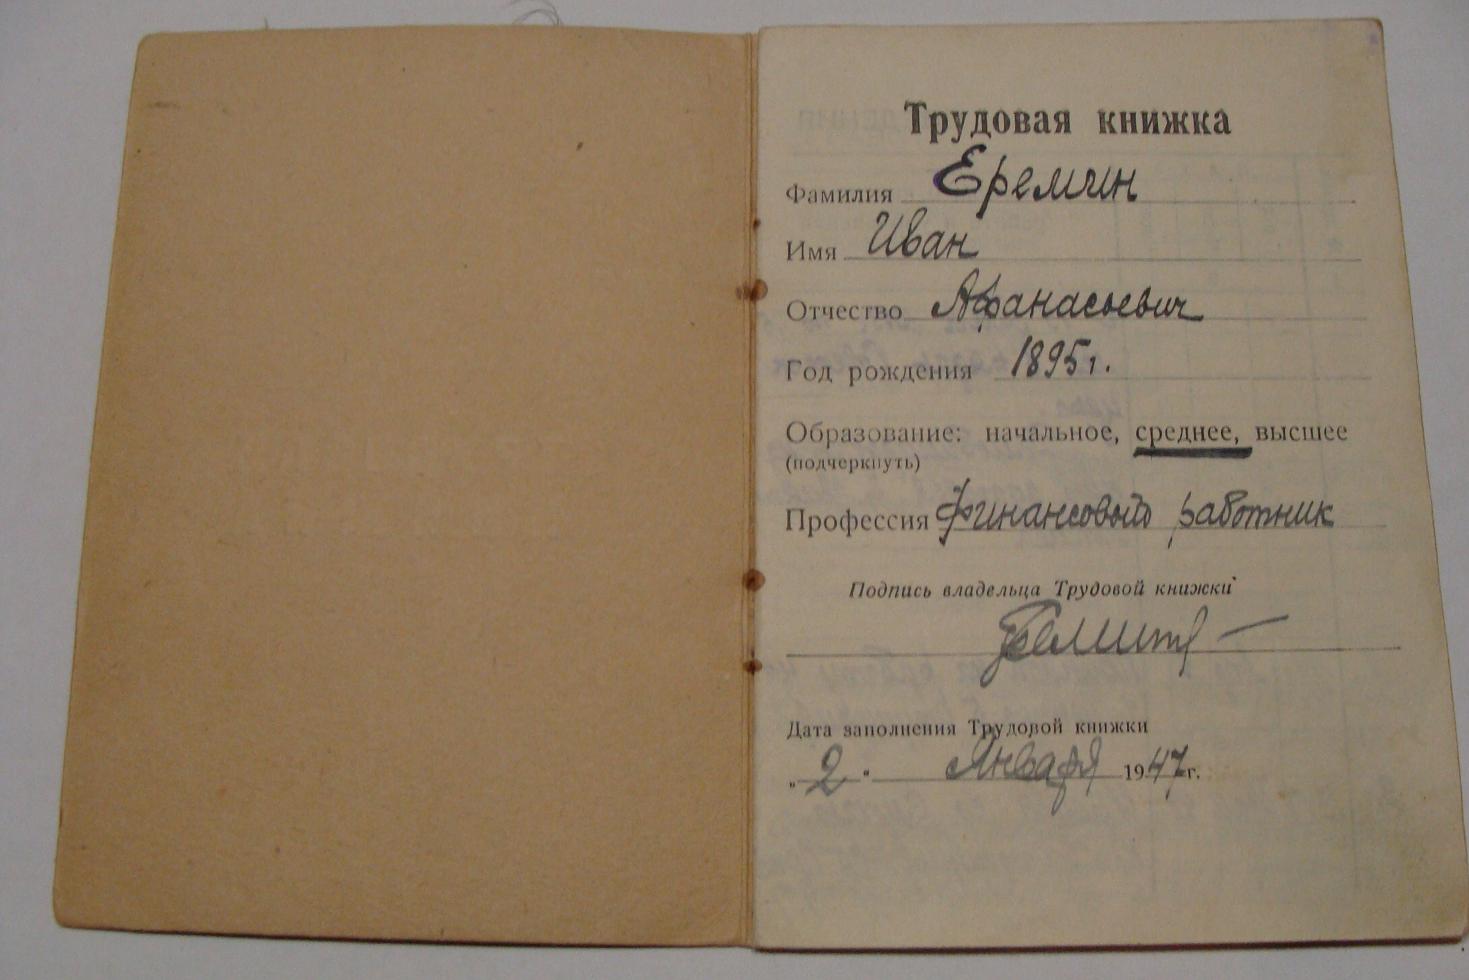 Трудовая книжка
Фамилия Еремин
Имя Иван
Отчество Афанасьевич
Год рождения 1895 г.
Образование: начальное, среднее, высшее
(подчеркнуть)
Профессия финансовый работник
Подпись владельца Трудовой книжки
Дата заполнения Трудовой книжки
„2“ Января 1947 г.